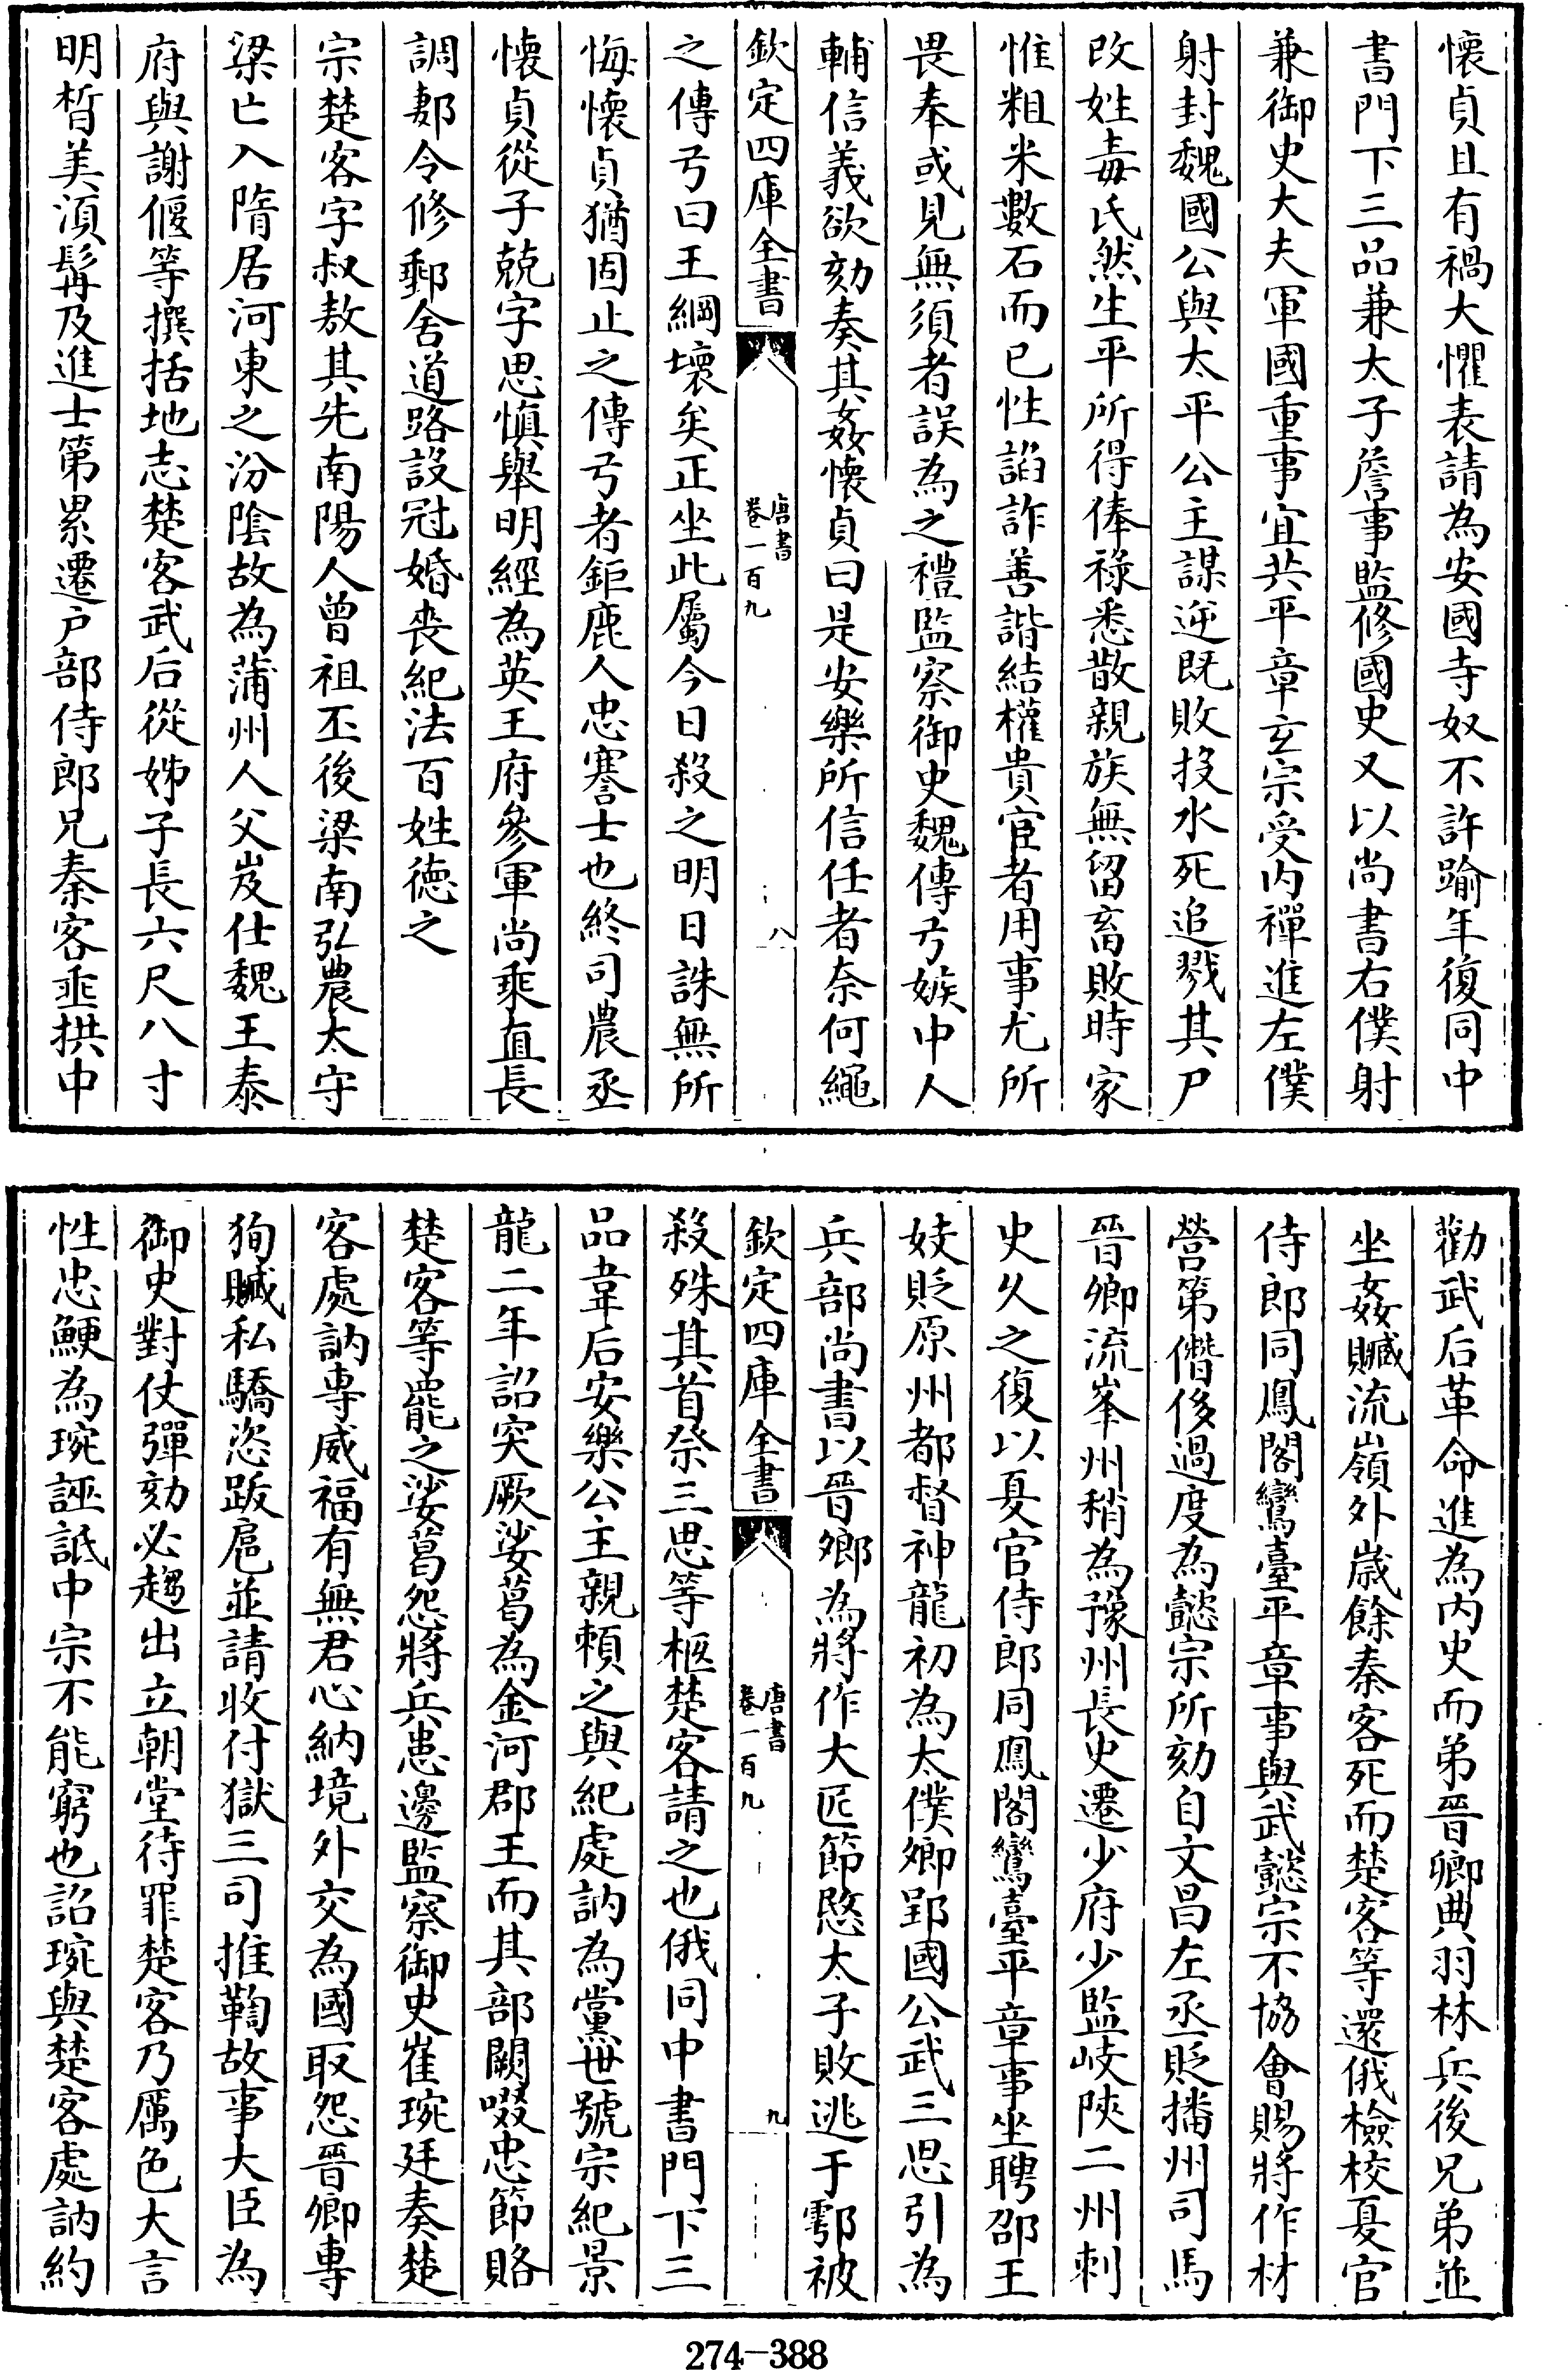 懐貞且有禍大懼表請為安國寺奴不許踰年復同中
書門下三品兼太子詹事監修國史又以尚書右僕射
兼御史大夫軍國重事宜共平章玄宗受内禪進左僕
射封魏國公與太平公主謀逆既敗投水死追戮其尸
改姓毒氏然生平所得俸祿悉散親族無留畜敗時家
惟粗米數石而已性諂詐善諧結權貴宦者用事尤所
畏奉或見無須者誤為之禮監察御史魏傳弓嫉中人
輔信義欲劾奏其姦懐貞曰是安樂所信任者奈何繩
欽定四庫全書
唐書
卷一百九
八
之傳弓曰王綱壞矣正坐此屬今日殺之明日誅無所
悔懐貞猶固止之傳弓者鉅鹿人忠謇士也終司農丞
懐貞從子兢字思慎舉明經為英王府參軍尚乘直長
調郪令修郵舍道路設冠婚喪紀法百姓德之
宗楚客字叔敖其先南陽人曾祖丕後梁南弘農太守
梁亡入隋居河東之汾陰故為蒲州人父岌仕魏王泰
府與謝偃等撰括地志楚客武后從姊子長六尺八寸
明晳美湏髯及進士第累遷户部侍郎兄秦客垂拱中
勸武后革命進為内史而弟晉卿典羽林兵後兄弟並
坐姦贓流嶺外歲餘秦客死而楚客等還俄檢校夏官
侍郎同鳳閣鸞臺平章事與武懿宗不協會賜將作材
營第僭侈過度為懿宗所劾自文昌左丞貶播州司馬
晉卿流峯州稍為豫州長史遷少府少監岐陝二州刺
史久之復以夏官侍郎同鳳閣鸞臺平章事坐聘邵王
妓貶原州都督神龍初為太僕卿郢國公武三思引為
兵部尚書以晉卿為將作大匠節愍太子敗逃于鄠被
欽定四庫全書
唐書
卷一百九
九
殺殊其首祭三思等柩楚客請之也俄同中書門下三
品韋后安樂公主親賴之與紀處訥為黨世號宗紀景
龍二年詔突厥娑葛為金河郡王而其部闕啜忠節賂
楚客等罷之娑葛怨將兵患邊監察御史崔琬廷奏楚
客處訥專威福有無君心納境外交為國取怨晉卿專
徇贓私驕恣跋扈並請收付獄三司推鞫故事大臣為
御史對仗彈劾必趨出立朝堂待罪楚客乃厲色大言
性忠鯁為琬誣詆中宗不能窮也詔琬與楚客處訥約
274-388